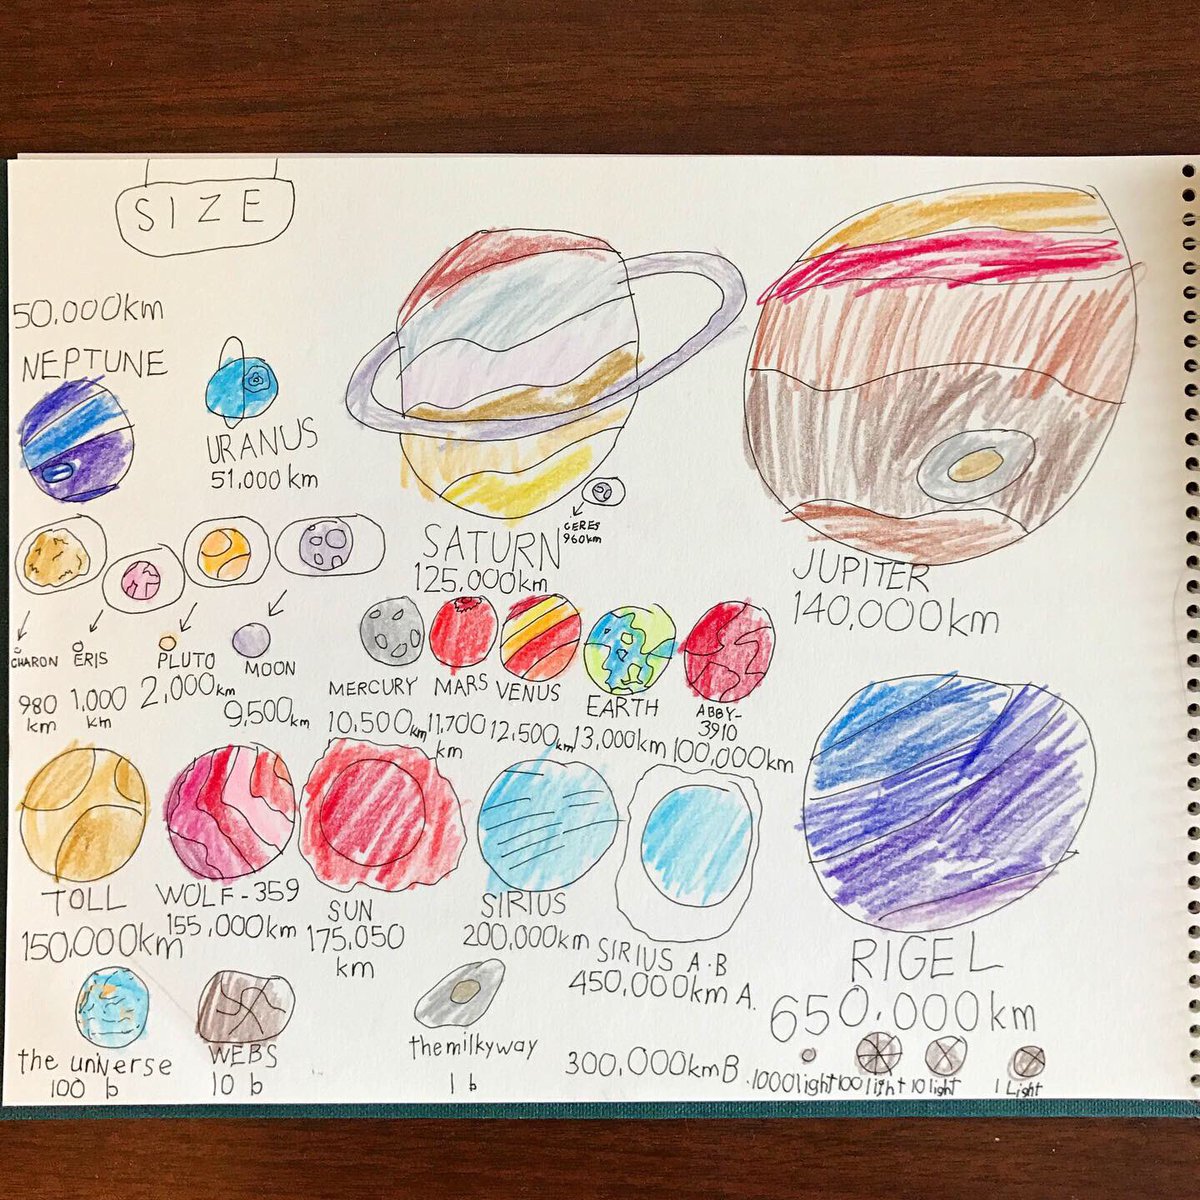 SIZE
50,000km
NEPTUNE
URANUS
51,000km
SATURN
125,000km
CERES
960km
JUPITER
140,000km
CHARON
980
km
ERIS
1,000
km
PLUTO
2,000km
MOON
9,500km
MERCURY
10,500km
MARS
11,700
km
VENUS
12,500km
EARTH
13,000km
ABBY-
3910
100,000km
TOLL
150,000km
WOLF-359
155,000km
SUN
175,050
km
SIRIUS
200,000km
SIRIUS A·B
450,000km A.
300,000kmB.
RIGEL
650,000km
the unNerse
100 b
WEBS
10 b
themilkyway
1 b
1000light
100light
10light
1 Light